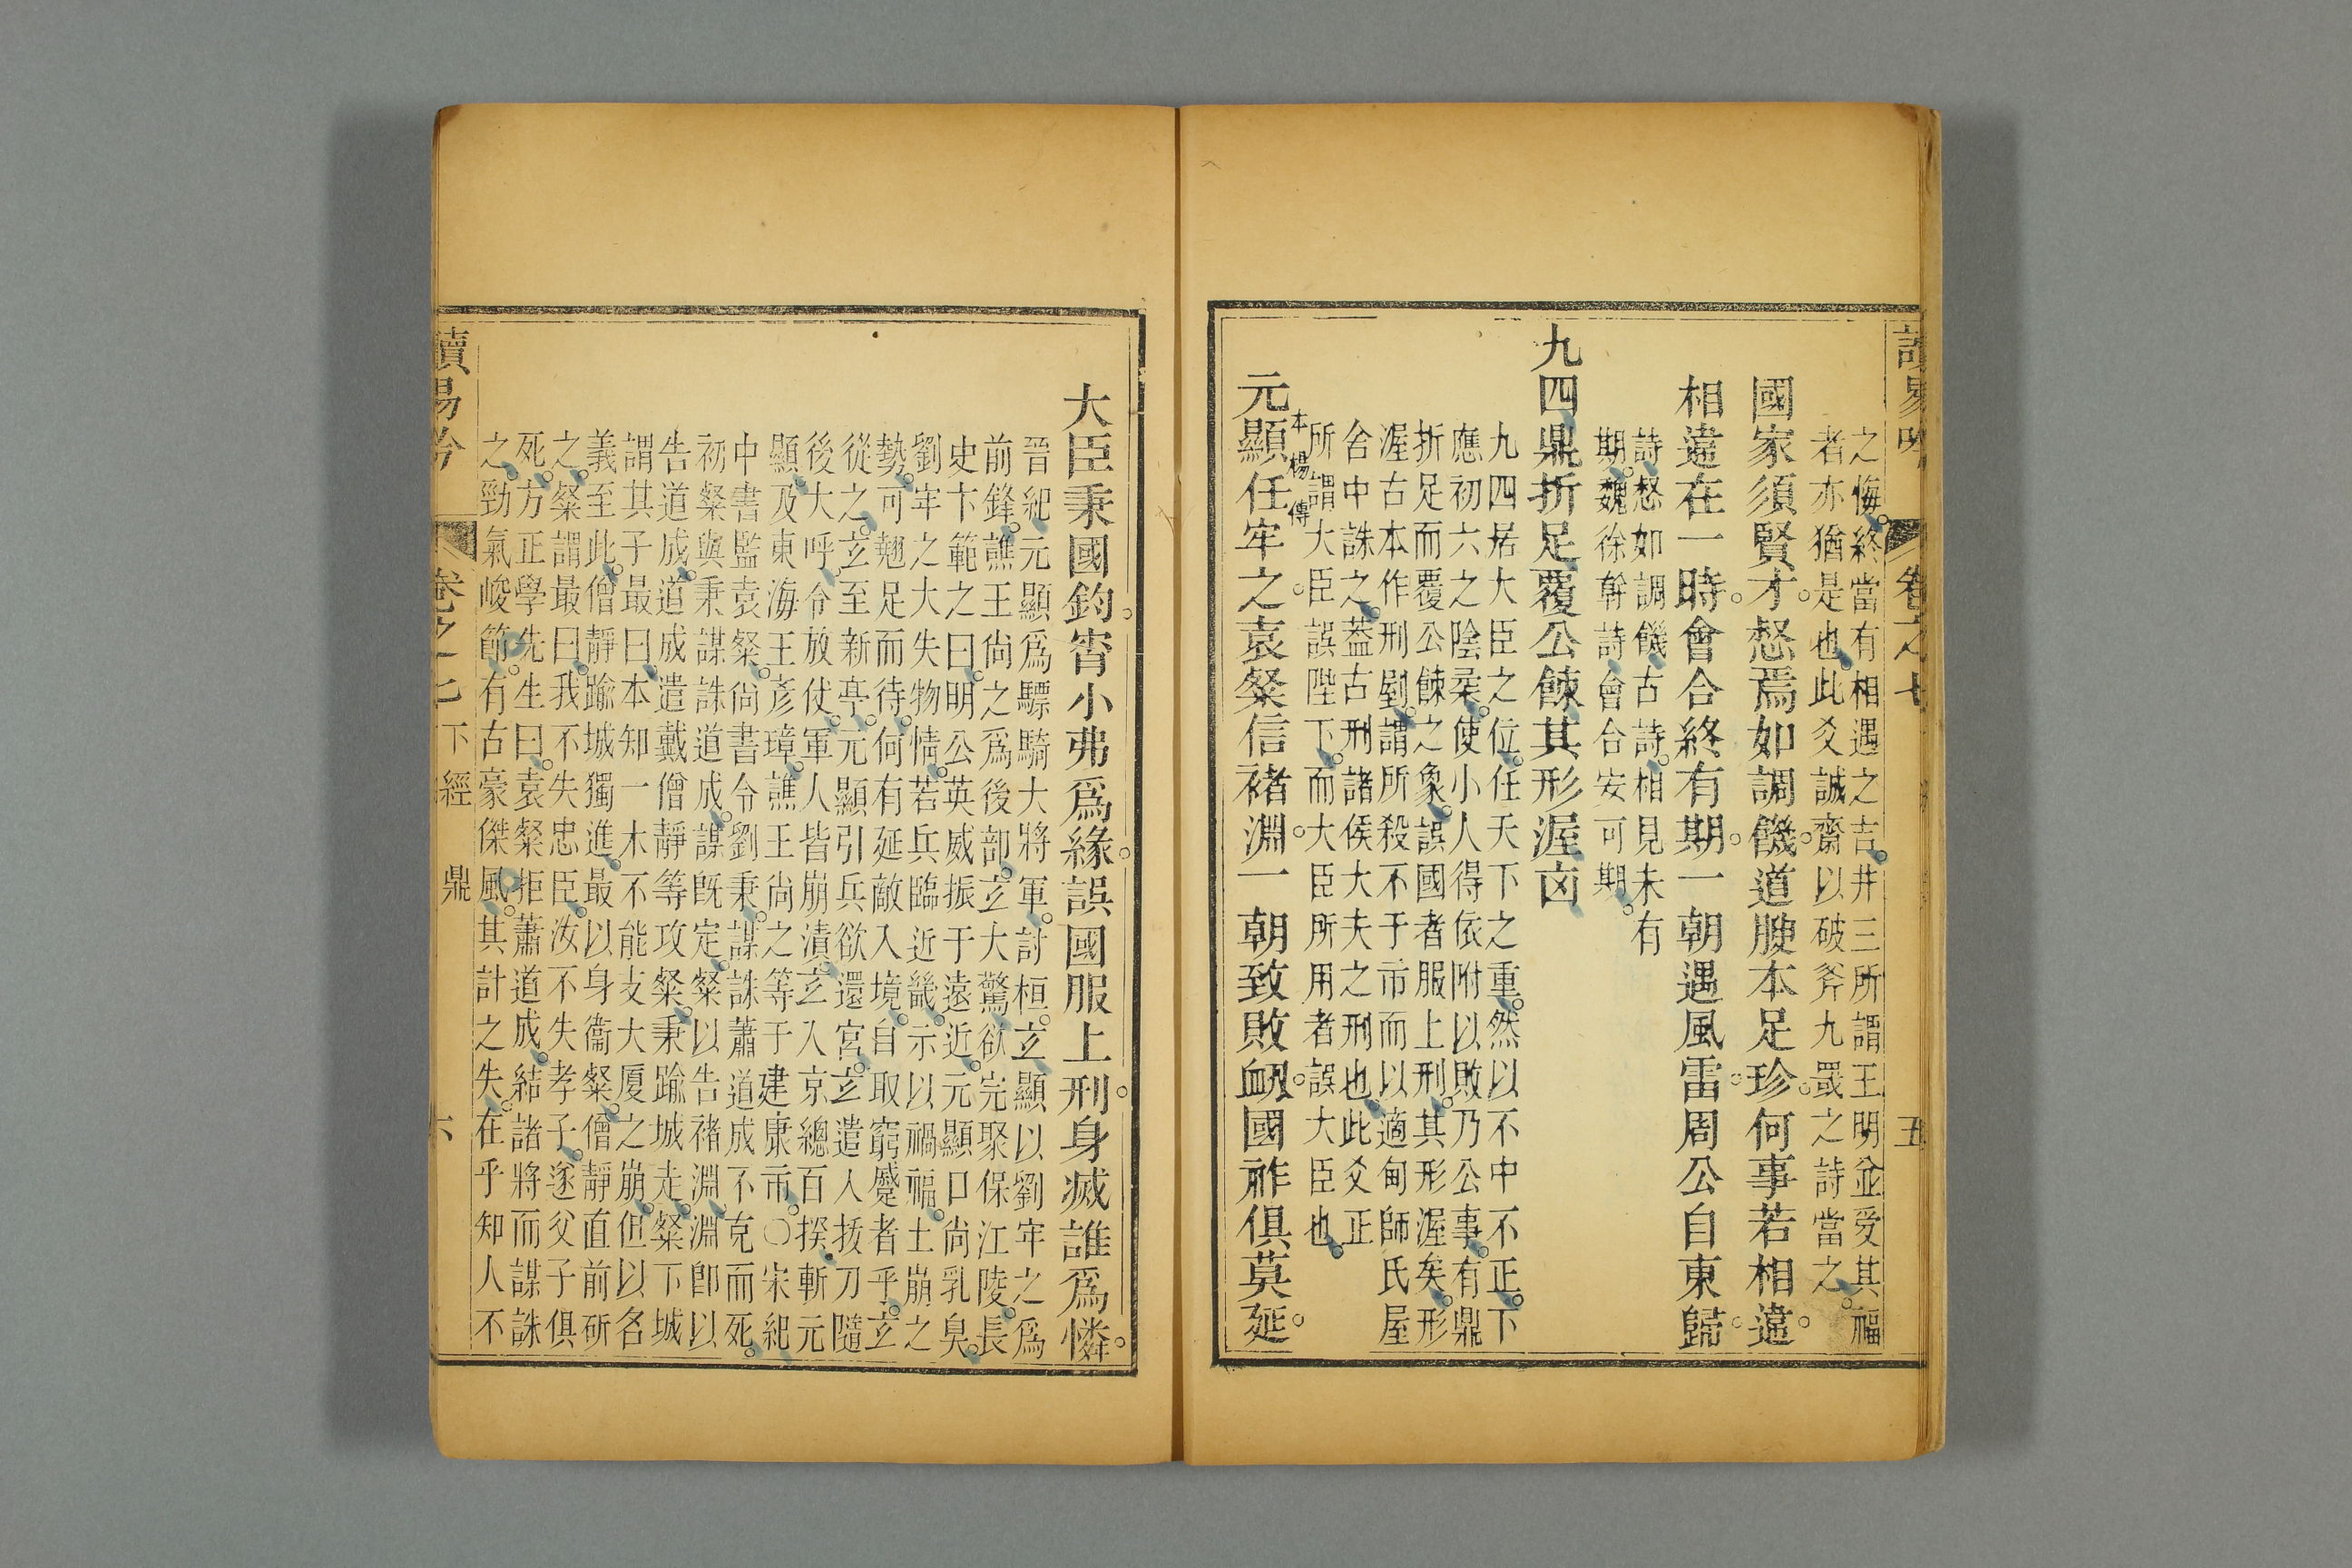 讀易吟
卷之七
五
之悔終當有相遇之吉井三所謂王明並受其福
者亦猶是也此爻誠齋以破斧九罭之詩當之
國家須賢才惄焉如調饑道腴本足珍何事若相違
相違在一時會合終有期一朝遇風雷周公自東歸
詩惄如調饑古詩相見未有
期魏徐幹詩會合安可期
九四鼎折足覆公餗其形渥凶
九四居大臣之位任天下之重然以不中不正下
應初六之陰柔使小人得依附以敗乃公事有鼎
折足而覆公餗之象誤國者服上刑其形渥矣形
渥古本作刑剭謂所殺不于市而以適甸師氏屋
舍中誅之葢古刑諸侯大夫之刑也此爻正
所謂大臣誤陛下而大臣所用者誤大臣也
本楊傳
元顯任牢之袁粲信褚淵一朝致敗衂國祚俱莫延
大臣秉國鈞宵小弗爲緣誤國服上刑身滅誰爲憐
晉紀元顯爲驃騎大將軍討桓玄顯以劉牢之爲
前鋒譙王尙之爲後部玄大驚欲完聚保江陵長
史卞範之曰明公英威振于遠近元顯口尙乳臭
劉牢之大失物情若兵臨近畿示以禍福土崩之
勢可翹足而待何有延敵入境自取窮蹙者乎玄
從之玄至新亭元顯引兵欲還宮玄遣人拔刀隨
後大呼令放仗軍人皆崩潰玄入京總百揆斬元
顯及東海王彥璋譙王尙之等于建康市○宋紀
中書監袁粲尙書令劉秉謀誅蕭道成不克而死
初粲與秉謀誅道成謀旣定粲以告褚淵淵卽以
告道成道成遣戴僧靜等攻粲秉踰城走粲下城
謂其子最曰本知一木不能支大厦之崩但以名
義至此僧靜踰城獨進最以身衞粲僧靜直前斫
之粲謂最曰我不失忠臣汝不失孝子遂父子俱
死方正學先生曰袁粲拒蕭道成結諸將而謀誅
之勁氣峻節有古豪傑風其計之失在乎知人不
讀易吟
卷之七
下經
鼎
六